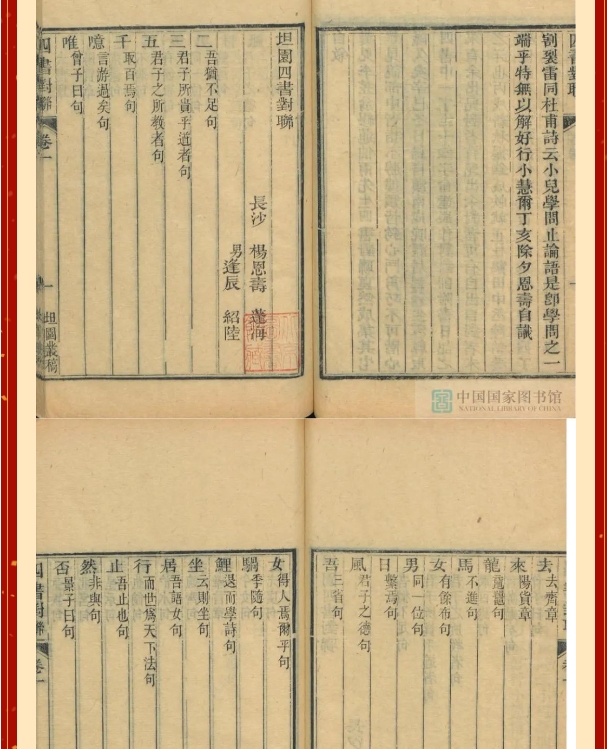 四書對聯
割裂雷同杜甫詩云小兒學問止論語是卽學問之一
端乎特無以解好行小慧爾丁亥除夕恩壽自識
坦園四書對聯
長沙 楊恩壽 蓬海
男逢辰 紹陸
二 吾猶不足句
三 君子所貴乎道者句
五 君子之所教者句
千 取百焉句
噫 言游過矣句
唯 曾子曰句
四書對聯 卷一 一 坦園叢稿
中国国家图书馆
NATIONAL LIBRARY OF CHINA
去 去齊章
來 陽貨章
龍 黿鼉句
馬 不進句
女 有餘布句
男 同一位句
日 繫焉句
風 君子之德句
吾 三省句
女 得人焉爾乎句
騧 季隨句
鯉 退而學詩句
坐 云則坐句
居 吾語女句
行 而世爲天下法句
止 吾止也句
然 非與句
否 景子曰句
四書對聯 卷一